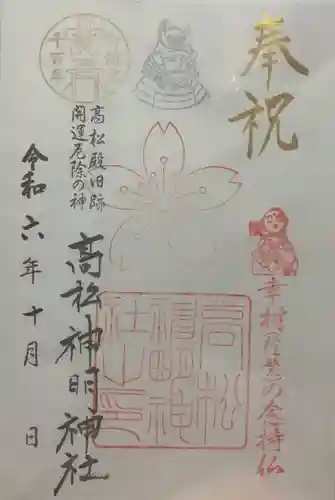 奉祝
幸村(信繁)の念持仏
高松神明社之印
高松殿旧跡
開運厄除の神
高松神明神社
令和六年十月 日